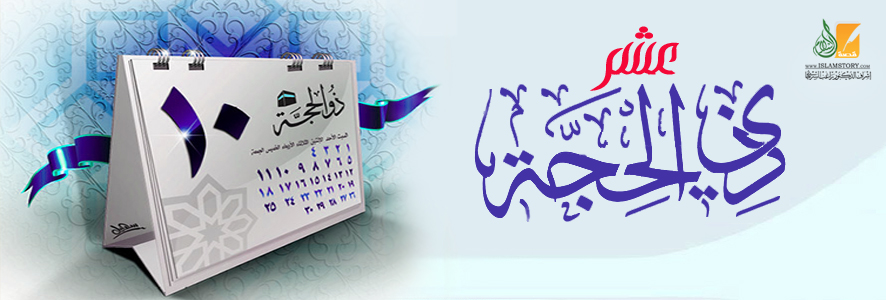 عشر
ذِي الْحِجَّة
١٠
ذو الحجة
السبت الأحد الاثنين الثلاثاء الأربعاء الخميس الجمعة
١ ٢ ٣ ٤
٥ ٦ ٧ ٨ ٩ ١٠ ١١
١٢ ١٣ ١٤ ١٥ ١٦ ١٧ ١٨
١٩ ٢٠ ٢١ ٢٢ ٢٣ ٢٤ ٢٥
٢٦ ٢٧ ٢٨ ٢٩ ٣٠
www.ISLAMSTORY.com
إشراف الدكتور راغب السرجاني